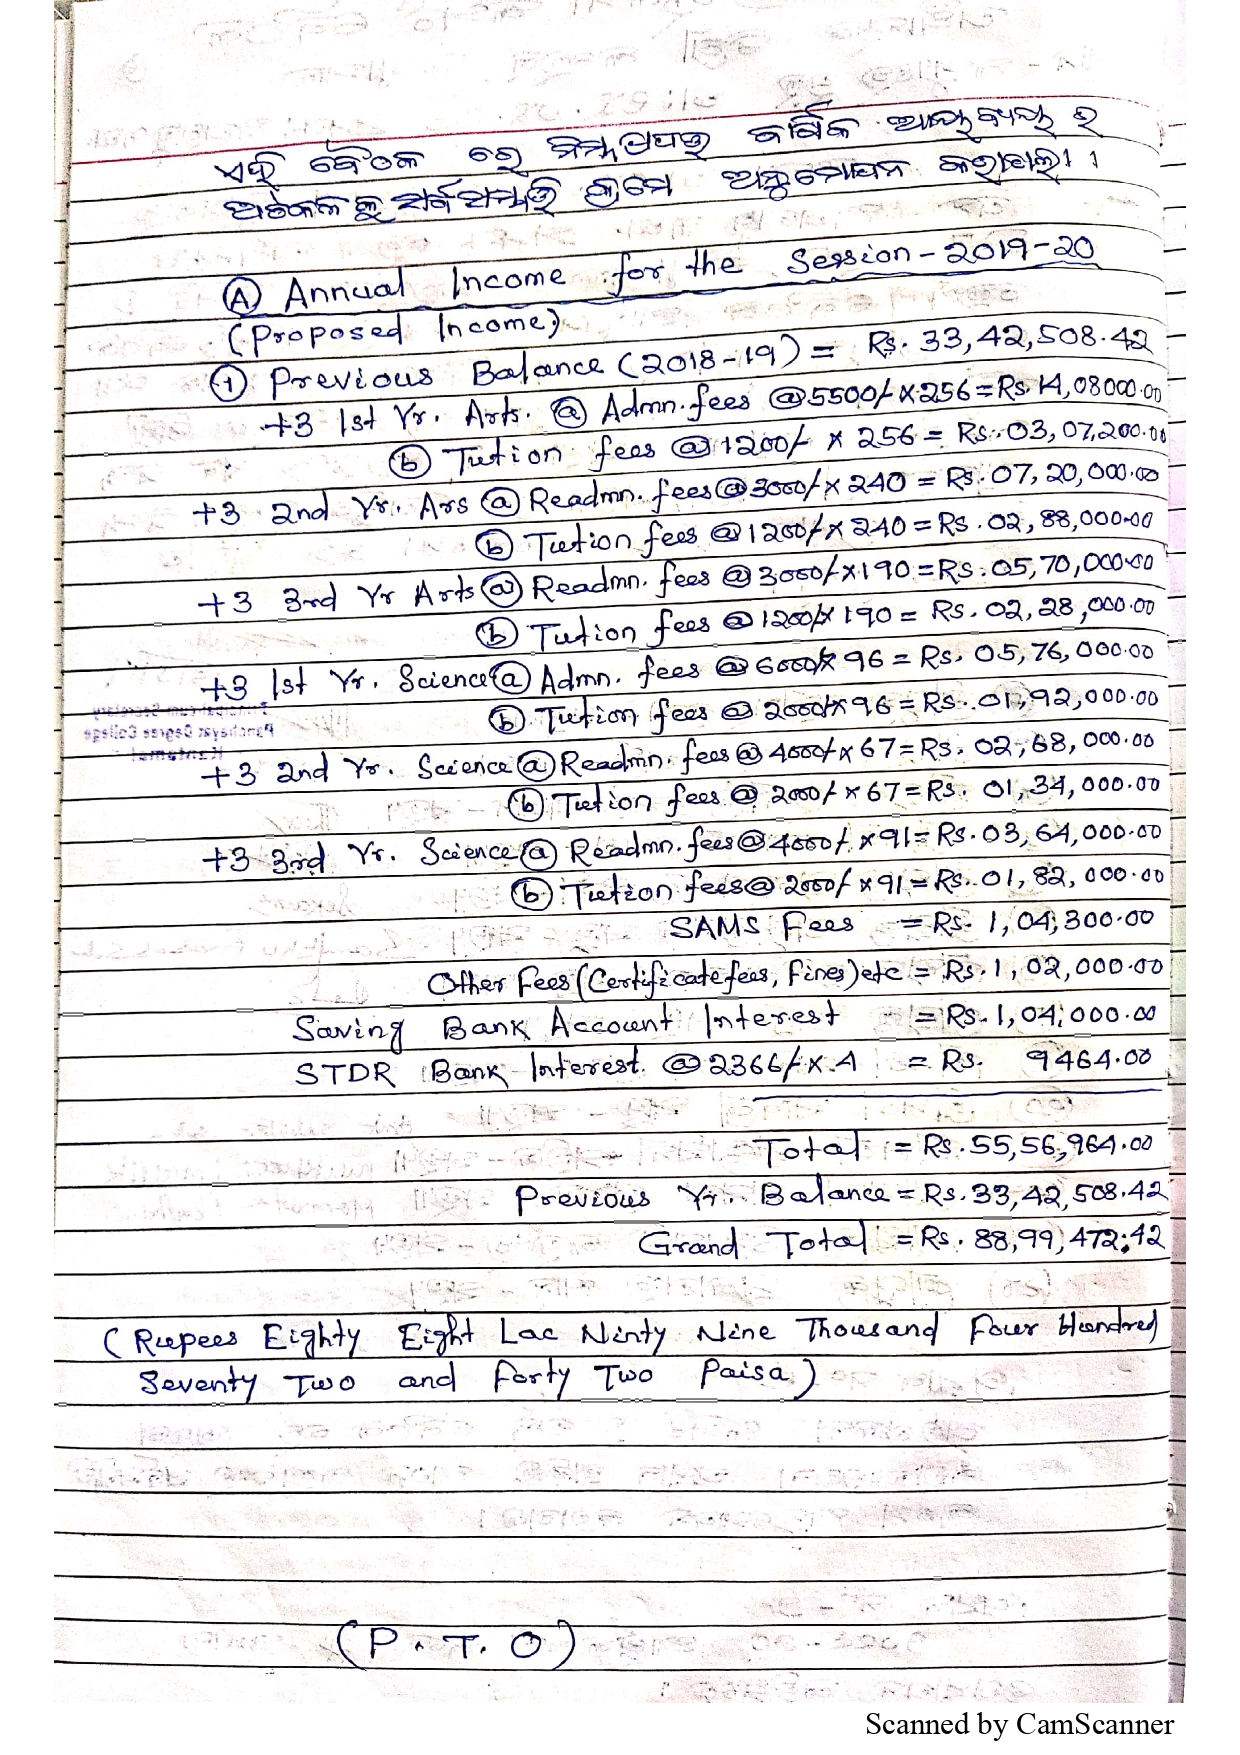 ଏହି ବୈଠକ ରେ ନିମ୍ନ ପ୍ରଦତ୍ତ ବାର୍ଷିକ ଆୟ ବ୍ୟୟ ର
ଅଟକଳକୁ ସର୍ବସମ୍ମତି କ୍ରମେ ଅନୁମୋଦନ କରାଗଲା ।
(A) Annual Income for the Session - 2019-20
(Proposed Income)
(1) Previous Balance (2018-19) = Rs. 33,42,508.42
+3 1st Yr. Arts. (a) Admn. fees @5500/- x 256 = Rs. 14,08000.00
(b) Tution fees @1200/- x 256 = Rs. 03,07,200.00
+3 2nd Yr. Ars (a) Readmn. fees @3000/- x 240 = Rs. 07,20,000.00
(b) Tution fees @1200/- x 240 = Rs. 02,88,000.00
+3 3rd Yr Arts (a) Readmn. fees @3000/- x 190 = Rs. 05,70,000.00
(b) Tution fees @1200/- x 190 = Rs. 02,28,000.00
+3 1st Yr. Science (a) Admn. fees @6000/- x 96 = Rs. 05,76,000.00
(b) Tution fees @ 2000/- x 96 = Rs. 01,92,000.00
+3 2nd Yr. Science (a) Readmn. fees @ 4000/- x 67 = Rs. 02,68,000.00
(b) Tution fees @ 2000/- x 67 = Rs. 01,34,000.00
+3 3rd Yr. Science (a) Readmn. fees @ 4000/- x 91 = Rs. 03,64,000.00
(b) Tution fees @ 2000/- x 91 = Rs. 01,82,000.00
SAMS Fees = Rs. 1,04,300.00
Other Fees (Certificate fees, fines) etc = Rs. 1,02,000.00
Saving Bank Account Interest = Rs. 1,04,000.00
STDR Bank Interest @ 2366/- x 4 = Rs. 9464.00
Total = Rs. 55,56,964.00
Previous Yr. Balance = Rs. 33,42,508.42
Grand Total = Rs. 88,99,472.42
(Rupees Eighty Eight Lac Ninty Nine Thousand Four Hundred
Seventy Two and Forty Two Paisa)
(P.T.O)
Scanned by CamScanner